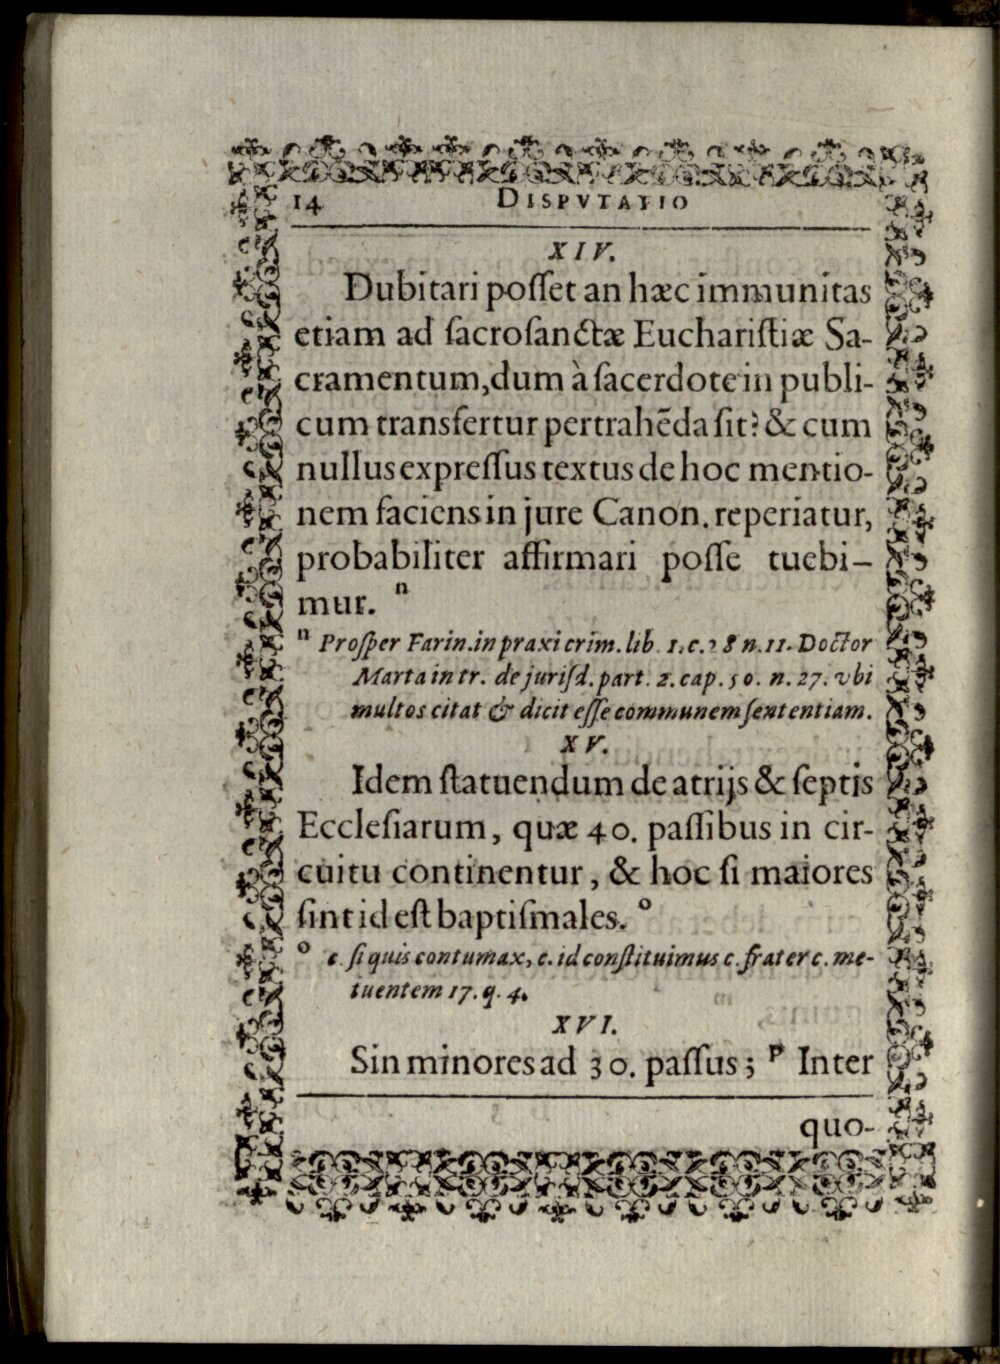 14 DISPVTATIO
XIV.
Dubitari poſſet an hæc immunitas
etiam ad ſacroſanctæ Euchariſtiæ Sa-
cramentum, dum à ſacerdote in publi-
cum transfertur pertrahẽda ſit? & cum
nullus expreſſus textus de hoc mentio-
nem faciens in jure Canon. reperiatur,
probabiliter affirmari poſſe tuebi-
mur. n
n Proſper Farin. in praxi crim. lib. 1. c. 28 n. 11. Doctor
Marta in tr. de juriſd. part. 2. cap. 50. n. 27. vbi
multos citat & dicit eſſe communem ſententiam.
XV.
Idem ſtatuendum de atrijs & ſeptis
Eccleſiarum, quæ 40. paſſibus in cir-
cuitu continentur, & hoc ſi maiores
ſint id eſt baptiſmales. o
o c. ſi quis contumax, c. id conſtituimus c. frater c. me-
tuentem 17. q. 4.
XVI.
Sin minores ad 30. paſſus; p Inter
quo-